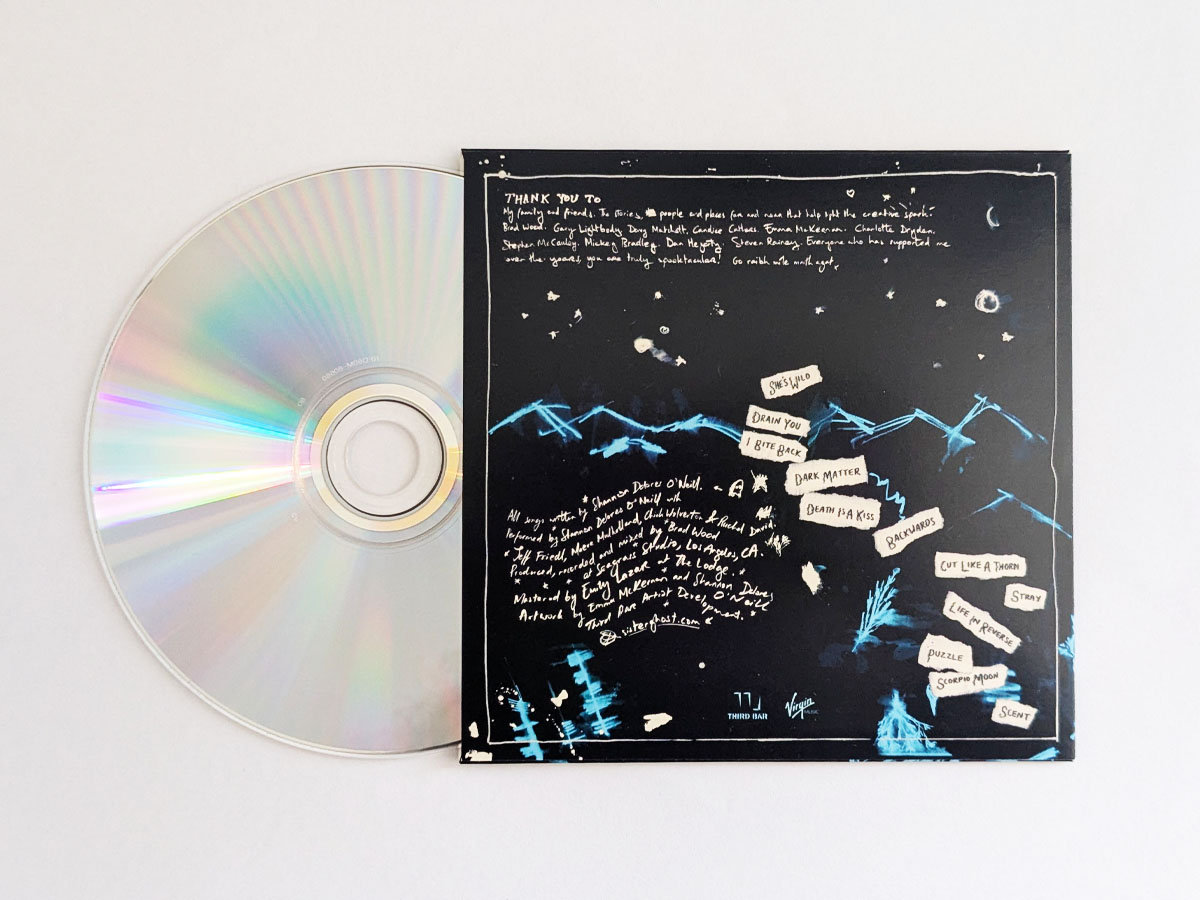 THANK YOU TO
My family and friends. The stories, people and places far and near that help light the creative spark.
Brad Wood. Gary Lightbody. Davy Matchett. Candice Cathers. Emma McKeeman. Charlotte Dryden.
Stephen McCauley. Mickey Bradley. Dan Hegarty. Steven Rainey. Everyone who has supported me
over the years, you are truly spooktacular! Go raibh míle maith agat.
SHE'S WILD
DRAIN YOU
I BITE BACK
DARK MATTER
DEATH IS A KISS
BACKWARDS
CUT LIKE A THORN
STRAY
LIFE IN REVERSE
PUZZLE
SCORPIO MOON
SCENT
All songs written by Shannon Delores O'Neill.
Performed by Shannon Delores O'Neill with
Jeff Friedl, Marco Mulholland, Chick Wolverton & Rachel David.
Produced, recorded and mixed by Brad Wood
at Seagrass Studio, Los Angeles, CA.
Mastered by Emily Lazar at The Lodge.
Artwork by Emma McKeeman and Shannon Delores O'Neill
Third Bar Artist Development.
sisterghost.com
THIRD BAR
Virgin
MUSIC